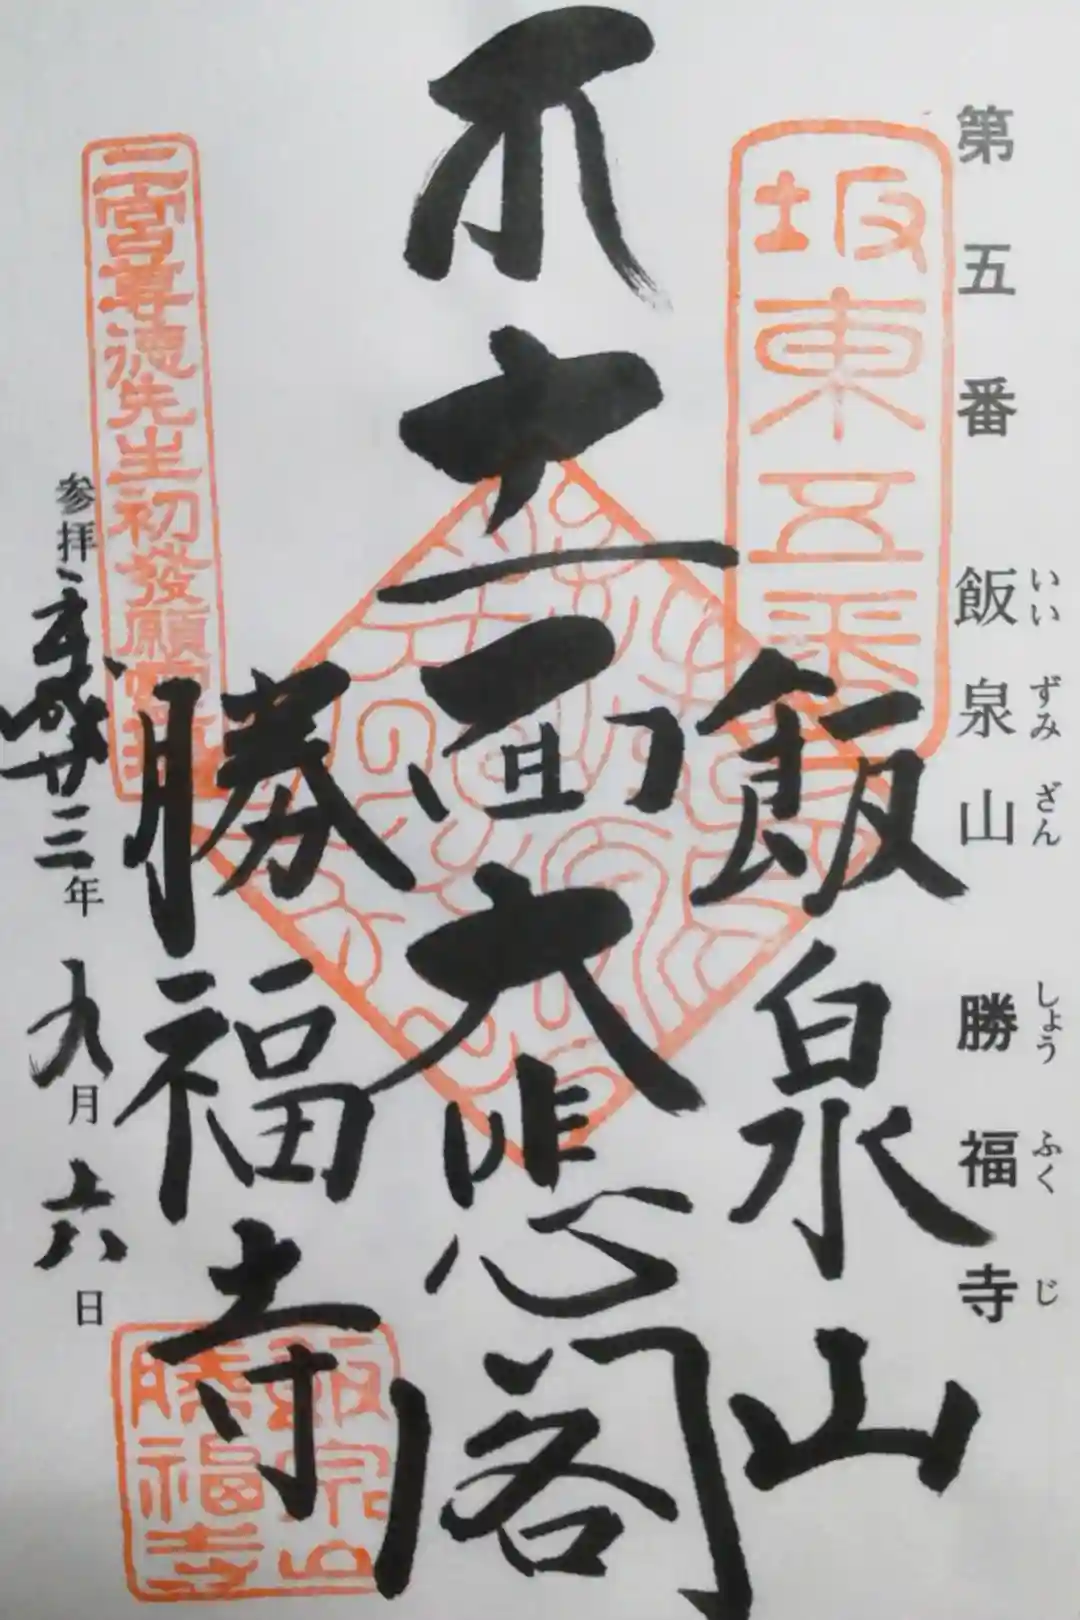 いい ずみ ざん しょう ふく じ
第五番 飯泉山 勝福寺
坂東五番
飯泉山
十一面大悲閣
勝福寺
飯泉山
勝福寺
二宮尊徳先生初發願
参拝、平成廿三年九月六日